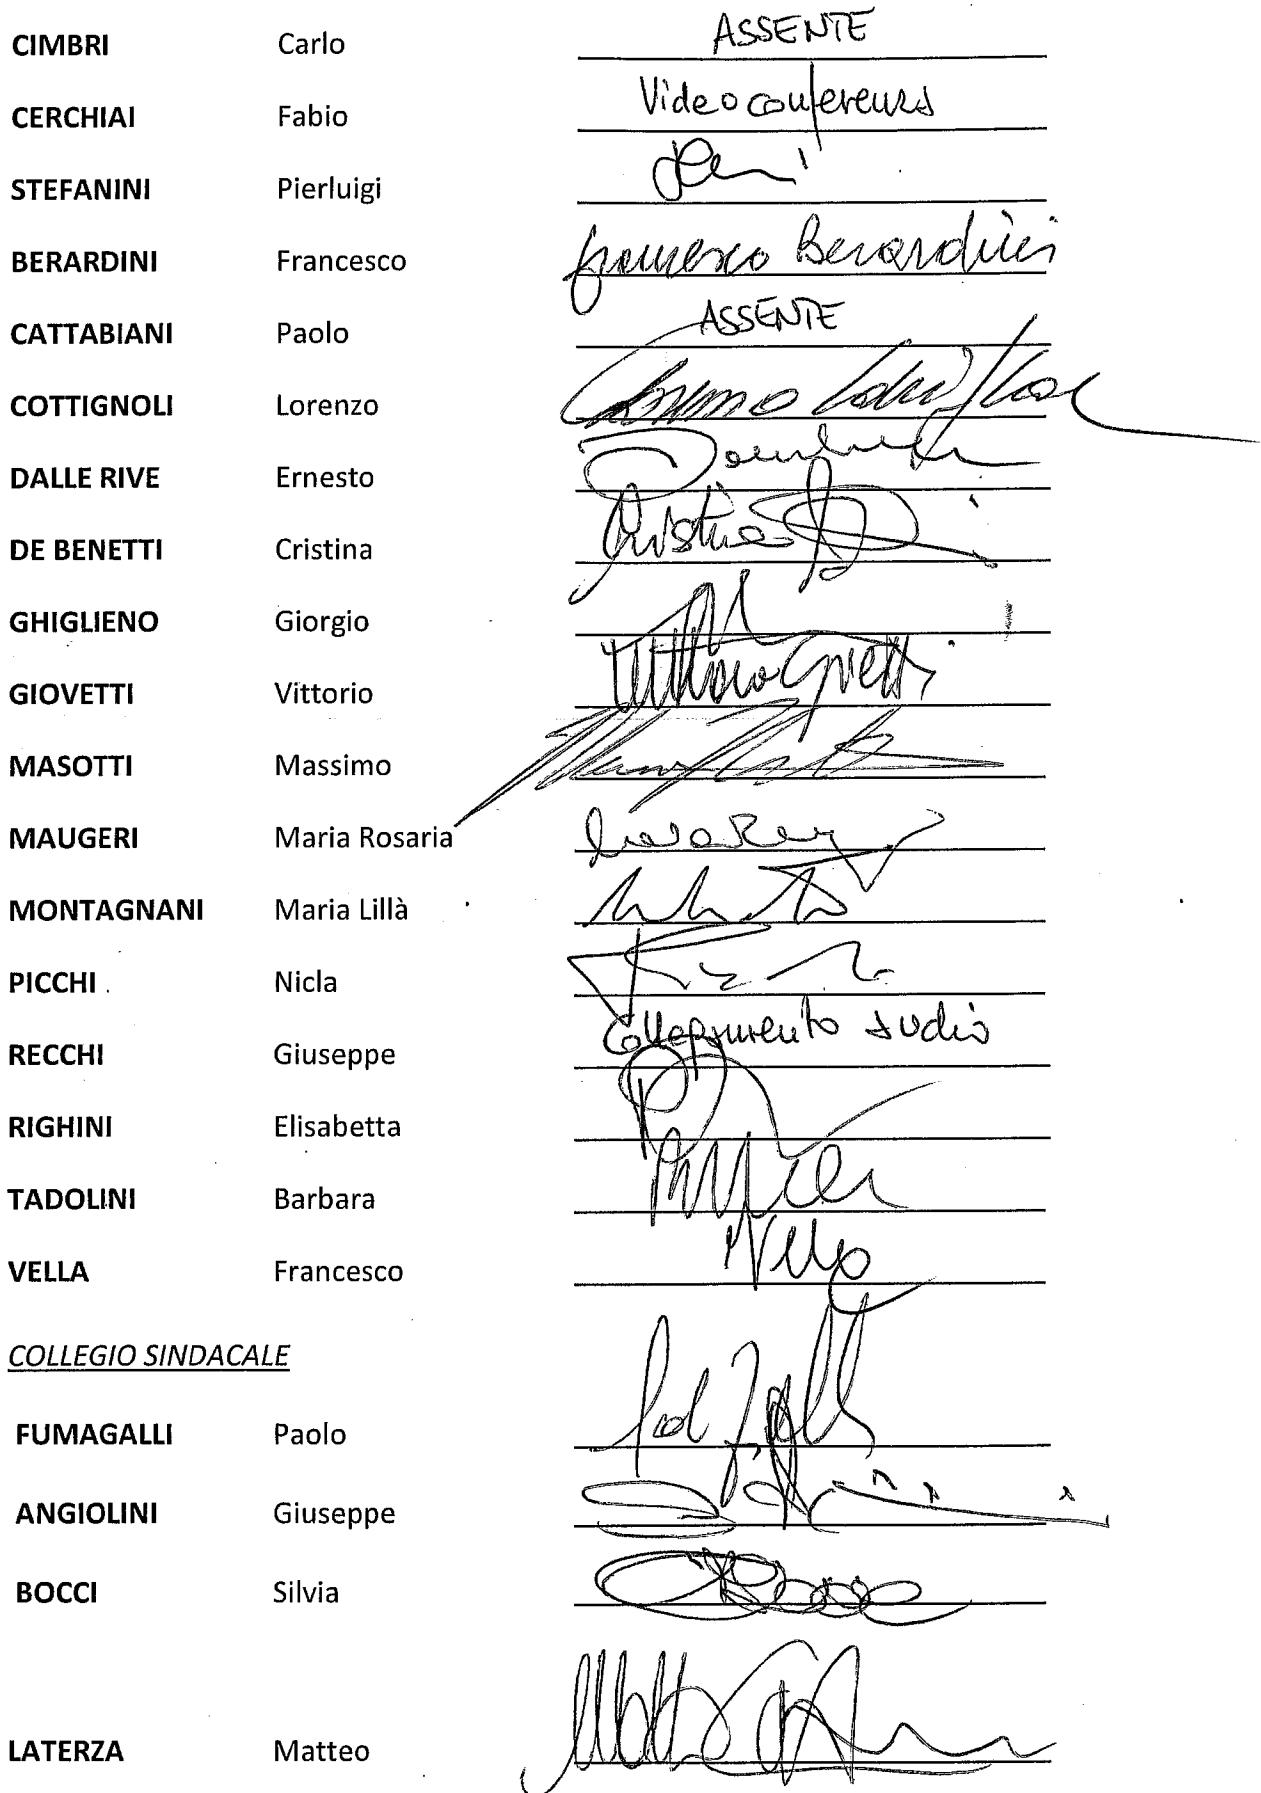 CIMBRI Carlo ASSENTE
CERCHIAI Fabio Videoconferenza
STEFANINI Pierluigi
BERARDINI Francesco Francesco Berardini
CATTABIANI Paolo ASSENTE
COTTIGNOLI Lorenzo
DALLE RIVE Ernesto
DE BENETTI Cristina Cristina
GHIGLIENO Giorgio
GIOVETTI Vittorio Vittorio Giovetti
MASOTTI Massimo
MAUGERI Maria Rosaria
MONTAGNANI Maria Lillà
PICCHI Nicla
RECCHI Giuseppe Collegamento audio
RIGHINI Elisabetta
TADOLINI Barbara
VELLA Francesco Vella
COLLEGIO SINDACALE
FUMAGALLI Paolo
ANGIOLINI Giuseppe
BOCCI Silvia
LATERZA Matteo